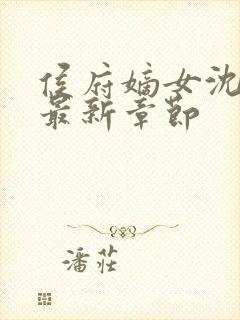 侯府嫡女沈
最新章节
潘莊